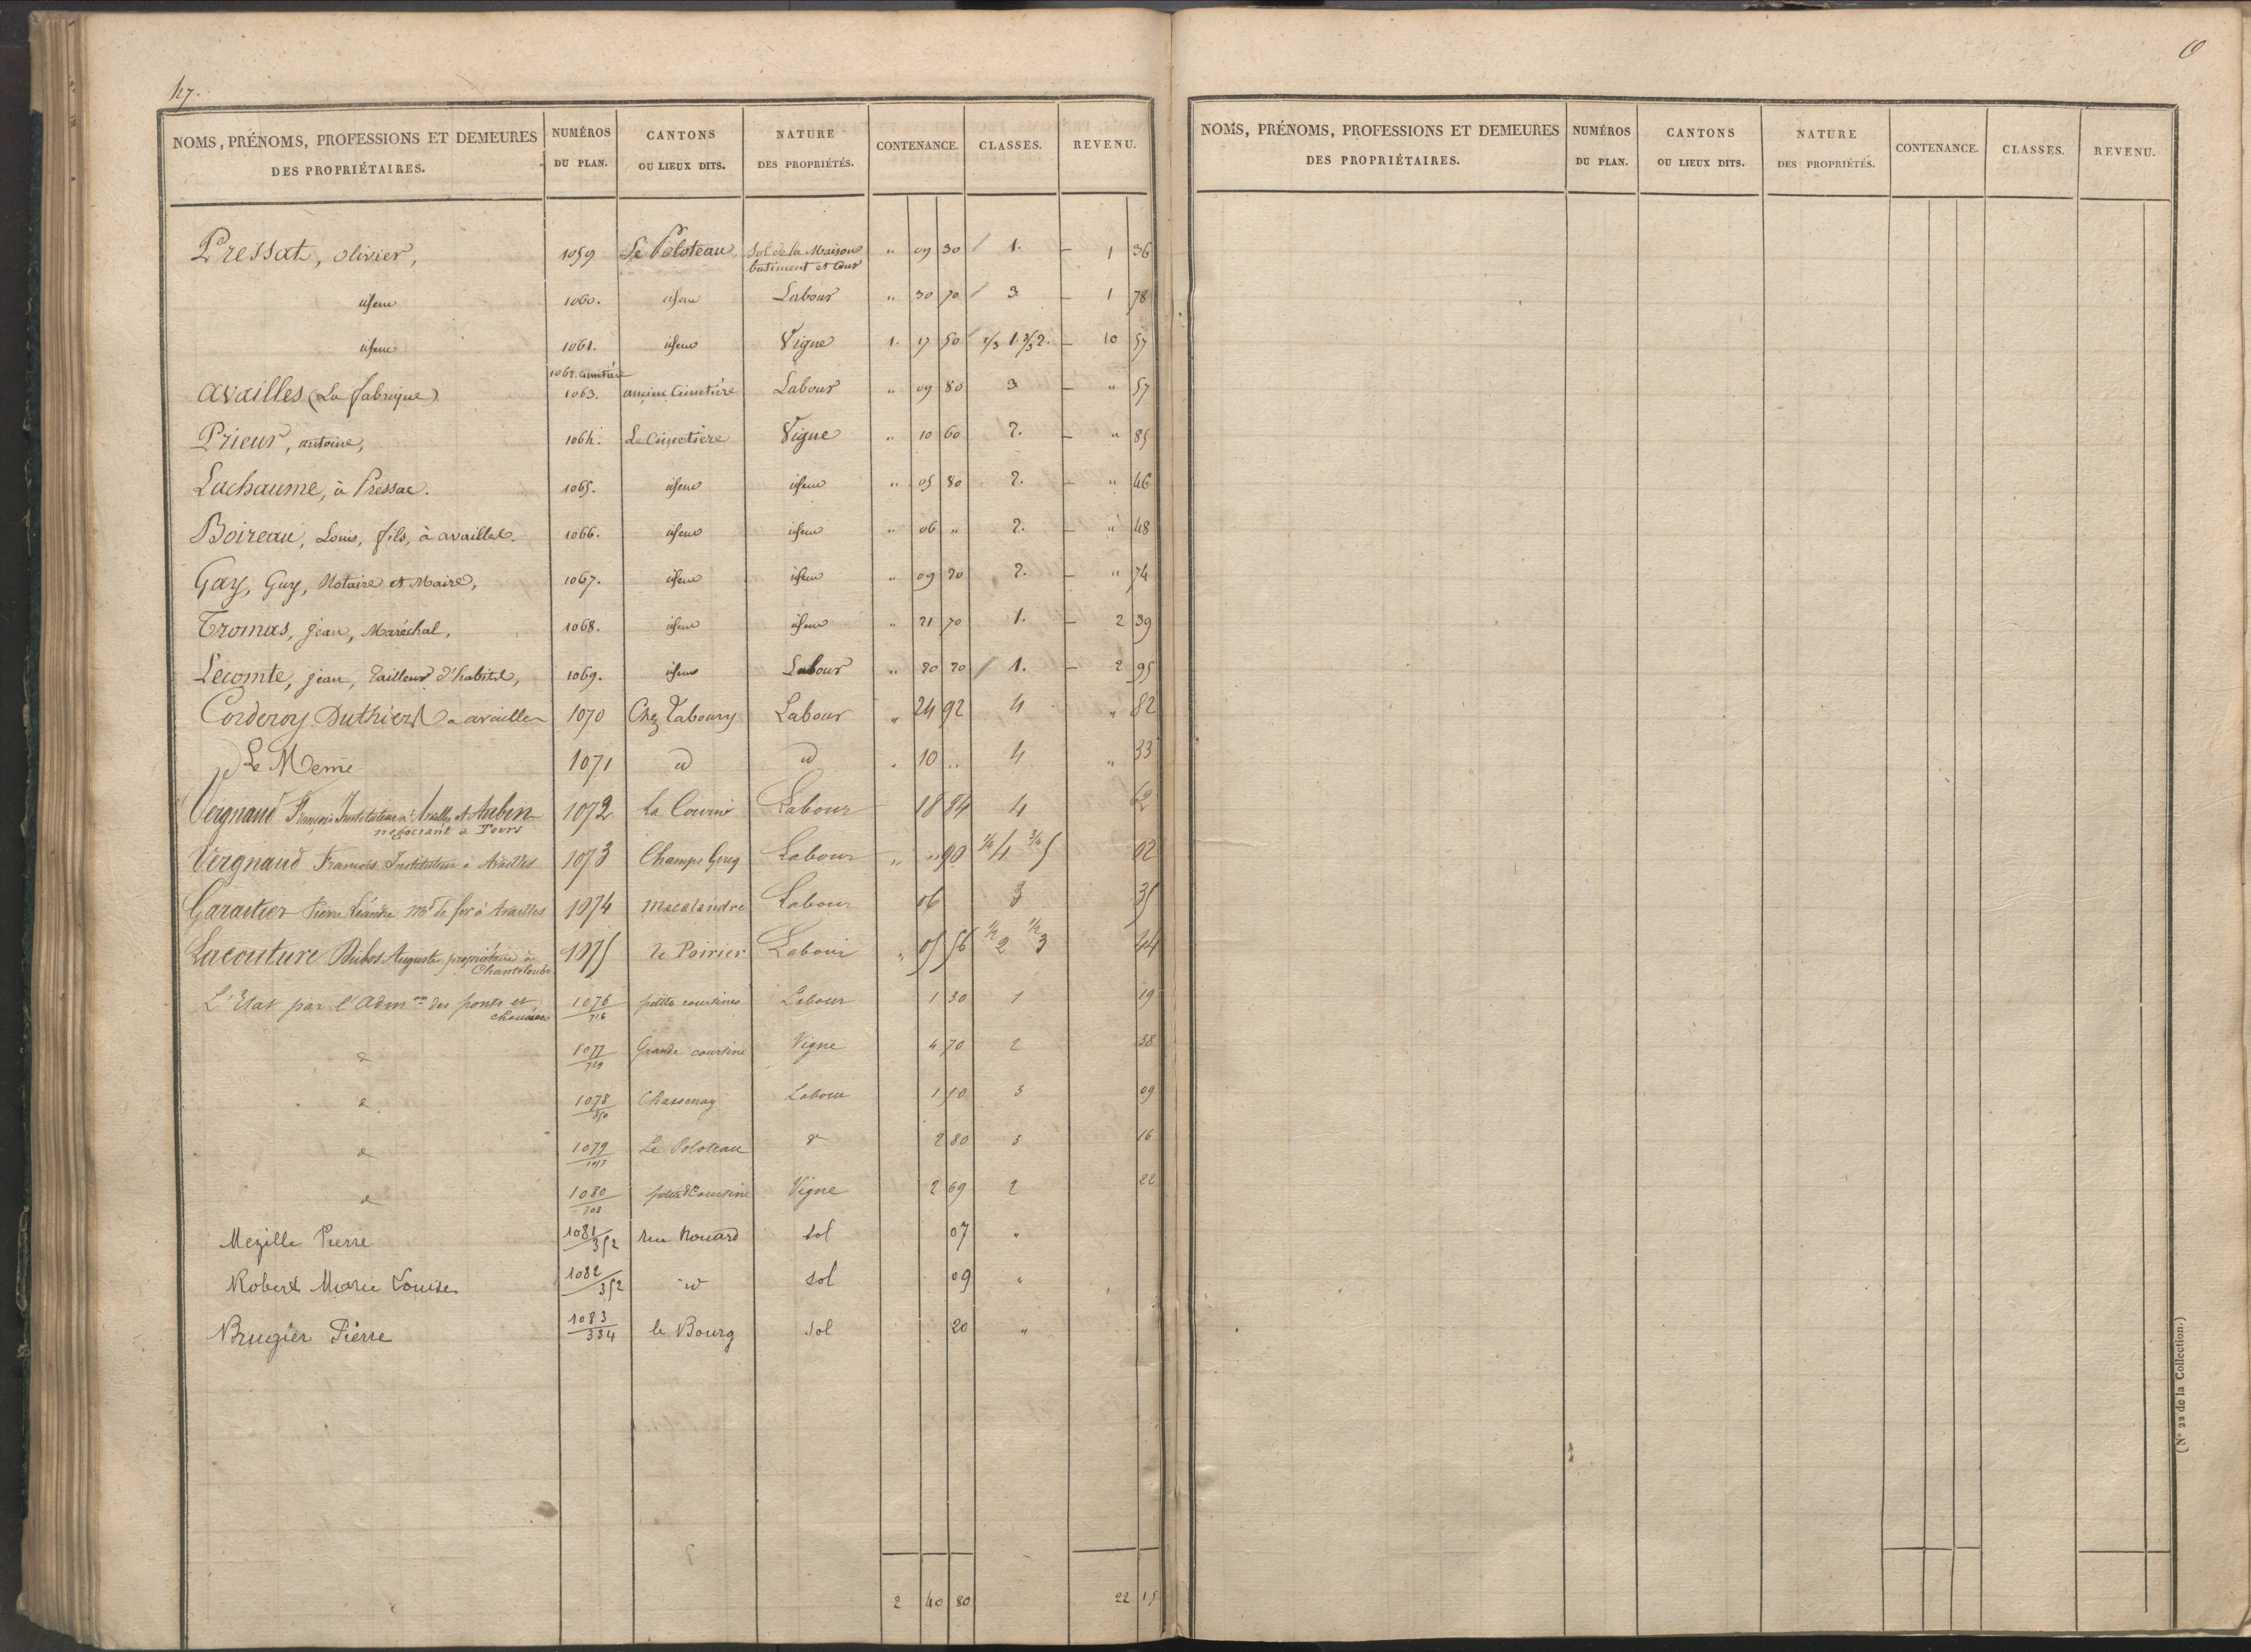 47.
NOMS, PRÉNOMS, PROFESSIONS ET DEMEURES DES PROPRIÉTAIRES. NUMÉROS DU PLAN. CANTONS OU LIEUX DITS. NATURE DES PROPRIÉTÉS. CONTENANCE. CLASSES. REVENU.
Pressat, olivier, 1059 Le Poloteau Sol de la Maison batiment et Cour " 09 30 1. 1 36
idem 1060. idem Labour " 30 70 3 1 78
idem 1061. idem Vigne 1. 17 50 1/3 1. 2/3 2. 10 57
1062. Cimetière
availles (La fabrique) 1063. ancien Cimetière Labour " 09 80 3 " 57
Prieur, antoine, 1064. Le Cimetière Vigne " 10 60 2. " 85
Lachaume, à Pressac. 1065. idem idem " 05 80 2. " 46
Boireau, Louis, fils, à availles. 1066. idem idem " 06 " 2. " 48
Gay, Guy, Notaire et Maire, 1067. idem idem " 09 20 2. " 74
Tromas, jean, Maréchal, 1068. idem idem " 21 70 1. 2 39
Lecomte, jean, Tailleur d'habits, 1069. idem Labour " 20 20 1. 2 95
Corderoy Duthiers a availles 1070 Chez Taboury Labour " 24 92 4 " 82
Le Meme 1071 id id " 10 .. 4 " 33
Vergnaud François Instituteur à Availles et Auben 1072 La Labour 18 84 4 62
négociant à
Vergnaud François Instituteur à Availles 1073 Champs Labour " " 90 1/4 4 3/4 5 02
Garaitier Pierre Léandre Md de fer à Availles 1074 Macalandre Labour 06 3 35
Lacouture Dubos Auguste propriétaire à Chanteloube 1075 le Poirier Labour " 05 56 1/2 2 1/2 3 44
L'Etat par l'Admon des ponts et chaussées 1076/716 petite coursines Labour 1 30 1 19
d 1077 Grande coursine Vigne 4 70 2 38
d 1078/850 Chassenay Labour 1 50 3 09
d 1079/1057 Le Poloteau d 2 80 3 16
d 1080/708 petite Coursine Vigne 2 69 2 22
Mezille Pierre 1081/352 rue Nouard sol 07 "
Robert Marie Louise 1082/352 id sol 09 "
Brugier Pierre 1083/334 le Bourg sol 20 "
2 40 80 22 15
NOMS, PRÉNOMS, PROFESSIONS ET DEMEURES DES PROPRIÉTAIRES. NUMÉROS DU PLAN. CANTONS OU LIEUX DITS. NATURE DES PROPRIÉTÉS. CONTENANCE. CLASSES. REVENU.
(N° 22 de la Collection.)